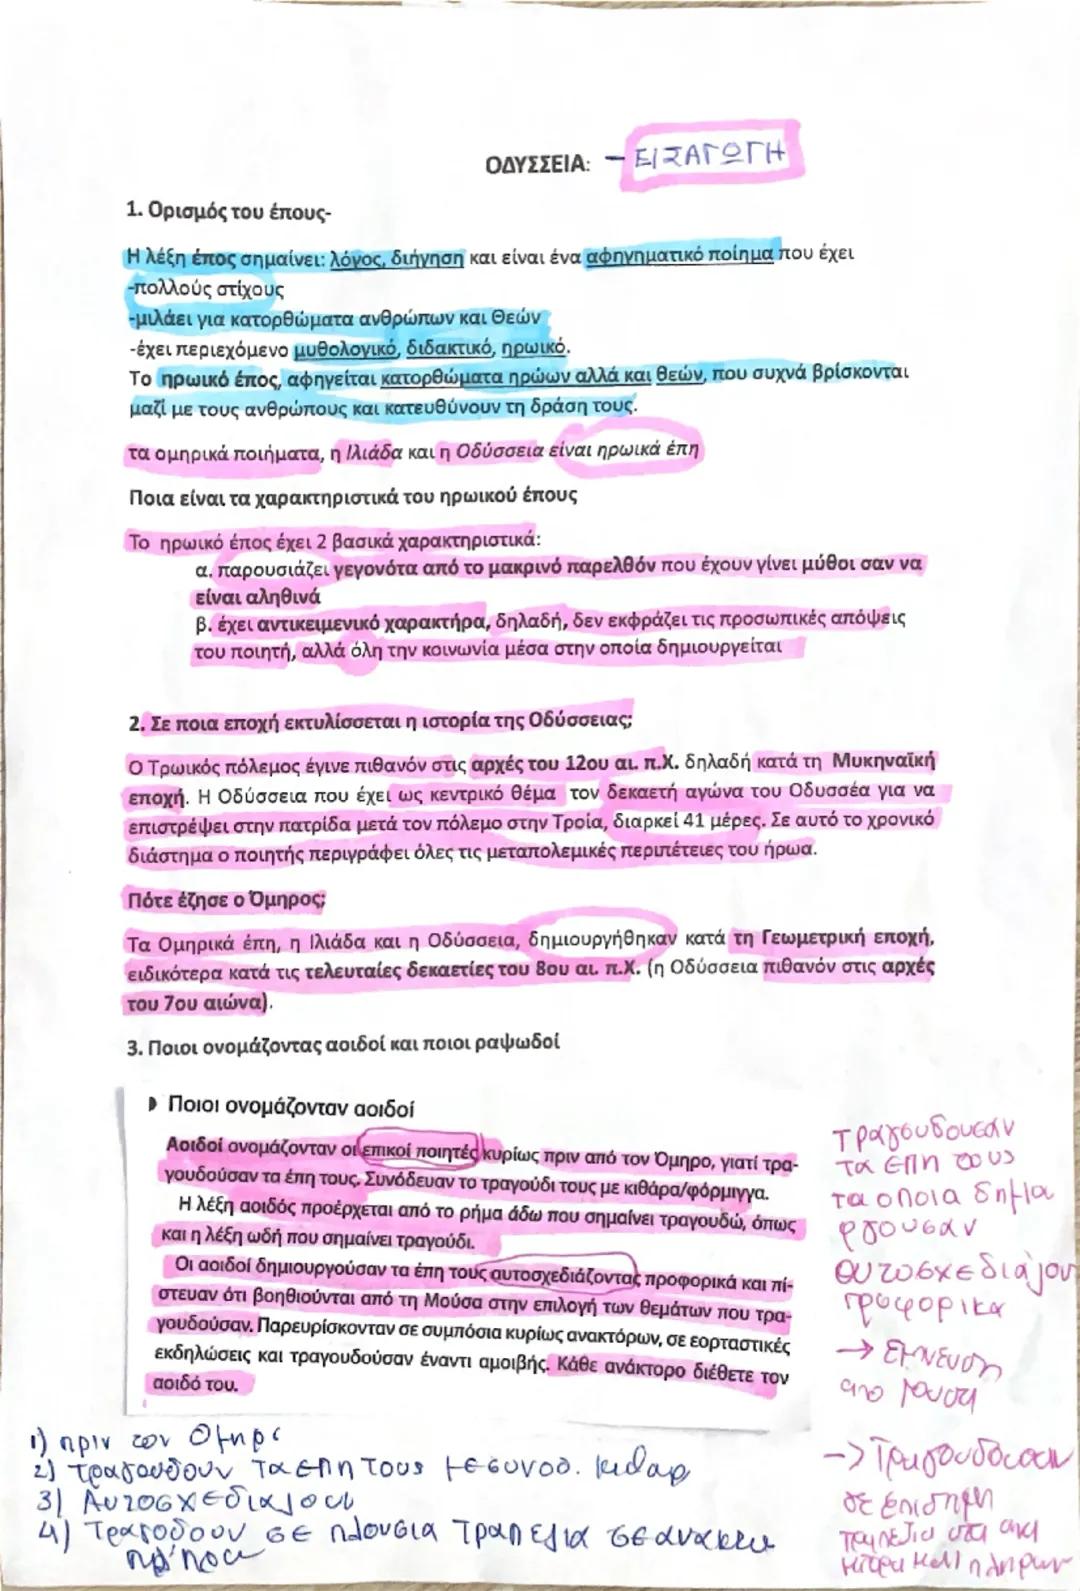 ΟΔΥΣΣΕΙΑ: - ΕΙΣΑΓΩΓΗ
1. Ορισμός του έπους-
Η λέξη έπος σημαίνει: λόγος, διήγηση και είναι ένα αφηγηματικό ποίημα που έχει
-πολλούς στίχους
-μιλάει για κατορθώματα ανθρώπων και Θεών
-έχει περιεχόμενο μυθολογικό, διδακτικό, ηρωικό.
Το ηρωικό έπος, αφηγείται κατορθώματα ηρώων αλλά και θεών, που συχνά βρίσκονται
μαζί με τους ανθρώπους και κατευθύνουν τη δράση τους.
τα ομηρικά ποιήματα, η Ιλιάδα και η Οδύσσεια είναι ηρωικά έπη
Ποια είναι τα χαρακτηριστικά του ηρωικού έπους
Το ηρωικό έπος έχει 2 βασικά χαρακτηριστικά:
α. παρουσιάζει γεγονότα από το μακρινό παρελθόν που έχουν γίνει μύθοι σαν να
είναι αληθινά
β. έχει αντικειμενικό χαρακτήρα, δηλαδή, δεν εκφράζει τις προσωπικές απόψεις
του ποιητή, αλλά όλη την κοινωνία μέσα στην οποία δημιουργείται
2. Σε ποια εποχή εκτυλίσσεται η ιστορία της Οδύσσειας;
Ο Τρωικός πόλεμος έγινε πιθανόν στις αρχές του 12ου αι. π.Χ. δηλαδή κατά τη Μυκηναϊκή
εποχή. Η Οδύσσεια που έχει ως κεντρικό θέμα τον δεκαετή αγώνα του Οδυσσέα για να
επιστρέψει στην πατρίδα μετά τον πόλεμο στην Τροία, διαρκεί 41 μέρες. Σε αυτό το χρονικό
διάστημα ο ποιητής περιγράφει όλες τις μεταπολεμικές περιπέτειες του ήρωα.
Πότε έζησε ο Όμηρος;
Τα Ομηρικά έπη, η Ιλιάδα και η Οδύσσεια, δημιουργήθηκαν κατά τη Γεωμετρική εποχή,
ειδικότερα κατά τις τελευταίες δεκαετίες του 8ου αι. π.Χ. (η Οδύσσεια πιθανόν στις αρχές
του 7ου αιώνα).
3. Ποιοι ονομάζοντας αοιδοί και ποιοι ραψωδοί
Ποιοι ονομάζονταν αοιδοί
Αοιδοί ονομάζονταν οι επικοί ποιητές κυρίως πριν από τον Όμηρο, γιατί τρα-
γουδούσαν τα έπη τους. Συνόδευαν το τραγούδι τους με κιθάρα/φόρμιγγα.
Η λέξη αοιδός προέρχεται από το ρήμα άδω που σημαίνει τραγουδώ, όπως
και η λέξη ωδή που σημαίνει τραγούδι.
Οι αοιδοί δημιουργούσαν τα έπη τους αυτοσχεδιάζοντας προφορικά και πί-
στευαν ότι βοηθιούνται από τη Μούσα στην επιλογή των θεμάτων που τρα-
γουδούσαν. Παρευρίσκονταν σε συμπόσια κυρίως ανακτόρων, σε εορταστικές
εκδηλώσεις και τραγουδούσαν έναντι αμοιβής. Κάθε ανάκτορο διέθετε τον
αοιδό του.
τραγουδουσαν
τα επη τους
τα οποια δημιο
ργουσαν
αυτοσχεδιάζον
προφορικα
→ Εμπνευση
απο μουσα
-> Τραγουδουσαν
σε επισημα
1) πριν τον Ομηρο
2) τραγουδουν τα επη τους με συνοδ. κιθαρ
3) Αυτοσχεδιαζουν
4) Τραγοδουν σε πλουσια τραπεζια σε